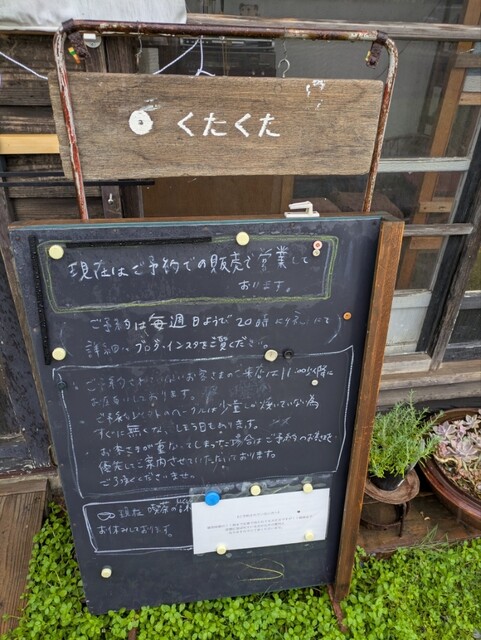 くたくた
現在はご予約での販売で営業して
おります。
ご予約は毎週日ようで20時 にて
詳細は ブログ・インスタをご覧ください。
ご予約されていないお客さまのご来店は11:00以降に
お願いしております。
ご予約 ベーグルは少量しか焼いていない為
すぐに無くな しまう日もあります。
お客さまが重なってしまった場合はご予約のお客さまを
優先してご案内させていただいております。
ご了承くださいませ。
現在 喫茶の
お休みしております。